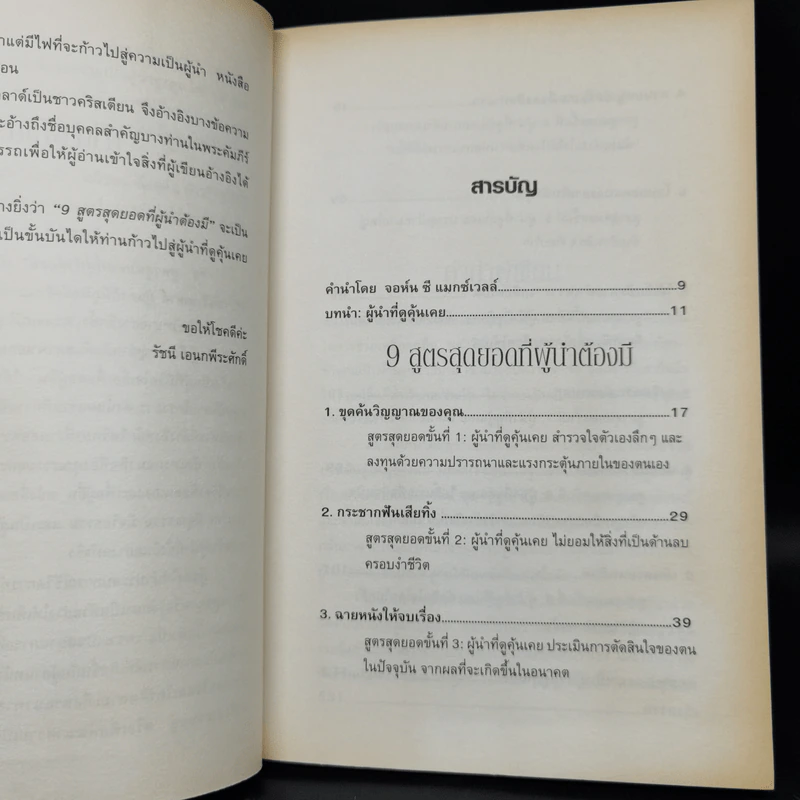 าแต่มีไฟที่จะก้าวไปสู่ความเป็นผู้นำ หนังสือ
อน
ลาด์เป็นชาวคริสเตียน จึงอ้างอิงบางข้อความ
ะอ้างถึงชื่อบุคคลสำคัญบางท่านในพระคัมภีร์
รรถเพื่อให้ผู้อ่านเข้าใจสิ่งที่ผู้เขียนอ้างอิงได้
างยิ่งว่า "9 สูตรสุดยอดที่ผู้นำต้องมี" จะเป็น
เป็นขั้นบันไดให้ท่านก้าวไปสู่ผู้นำที่ดูคุ้นเคย
ขอให้โชคดีค่ะ
รัชนี เอนกพีระศักดิ์
สารบัญ
คำนำโดย จอห์น ซี แมกซ์เวลล์....................9
บทนำ: ผู้นำที่ดูคุ้นเคย....................11
9 สูตรสุดยอดที่ผู้นำต้องมี
1. ขุดค้นวิญญาณของคุณ....................17
สูตรสุดยอดขั้นที่ 1: ผู้นำที่ดูคุ้นเคย สำรวจใจตัวเองลึกๆ และ
ลงทุนด้วยความปรารถนาและแรงกระตุ้นภายในของตนเอง
2. กระชากฟันเสียทิ้ง ....................29
สูตรสุดยอดขั้นที่ 2: ผู้นำที่ดูคุ้นเคย ไม่ยอมให้สิ่งที่เป็นด้านลบ
ครอบงำชีวิต
3. ฉายหนังให้จบเรื่อง....................39
สูตรสุดยอดขั้นที่ 3: ผู้นำที่ดูคุ้นเคย ประเมินการตัดสินใจของตน
ในปัจจุบัน จากผลที่จะเกิดขึ้นในอนาคต